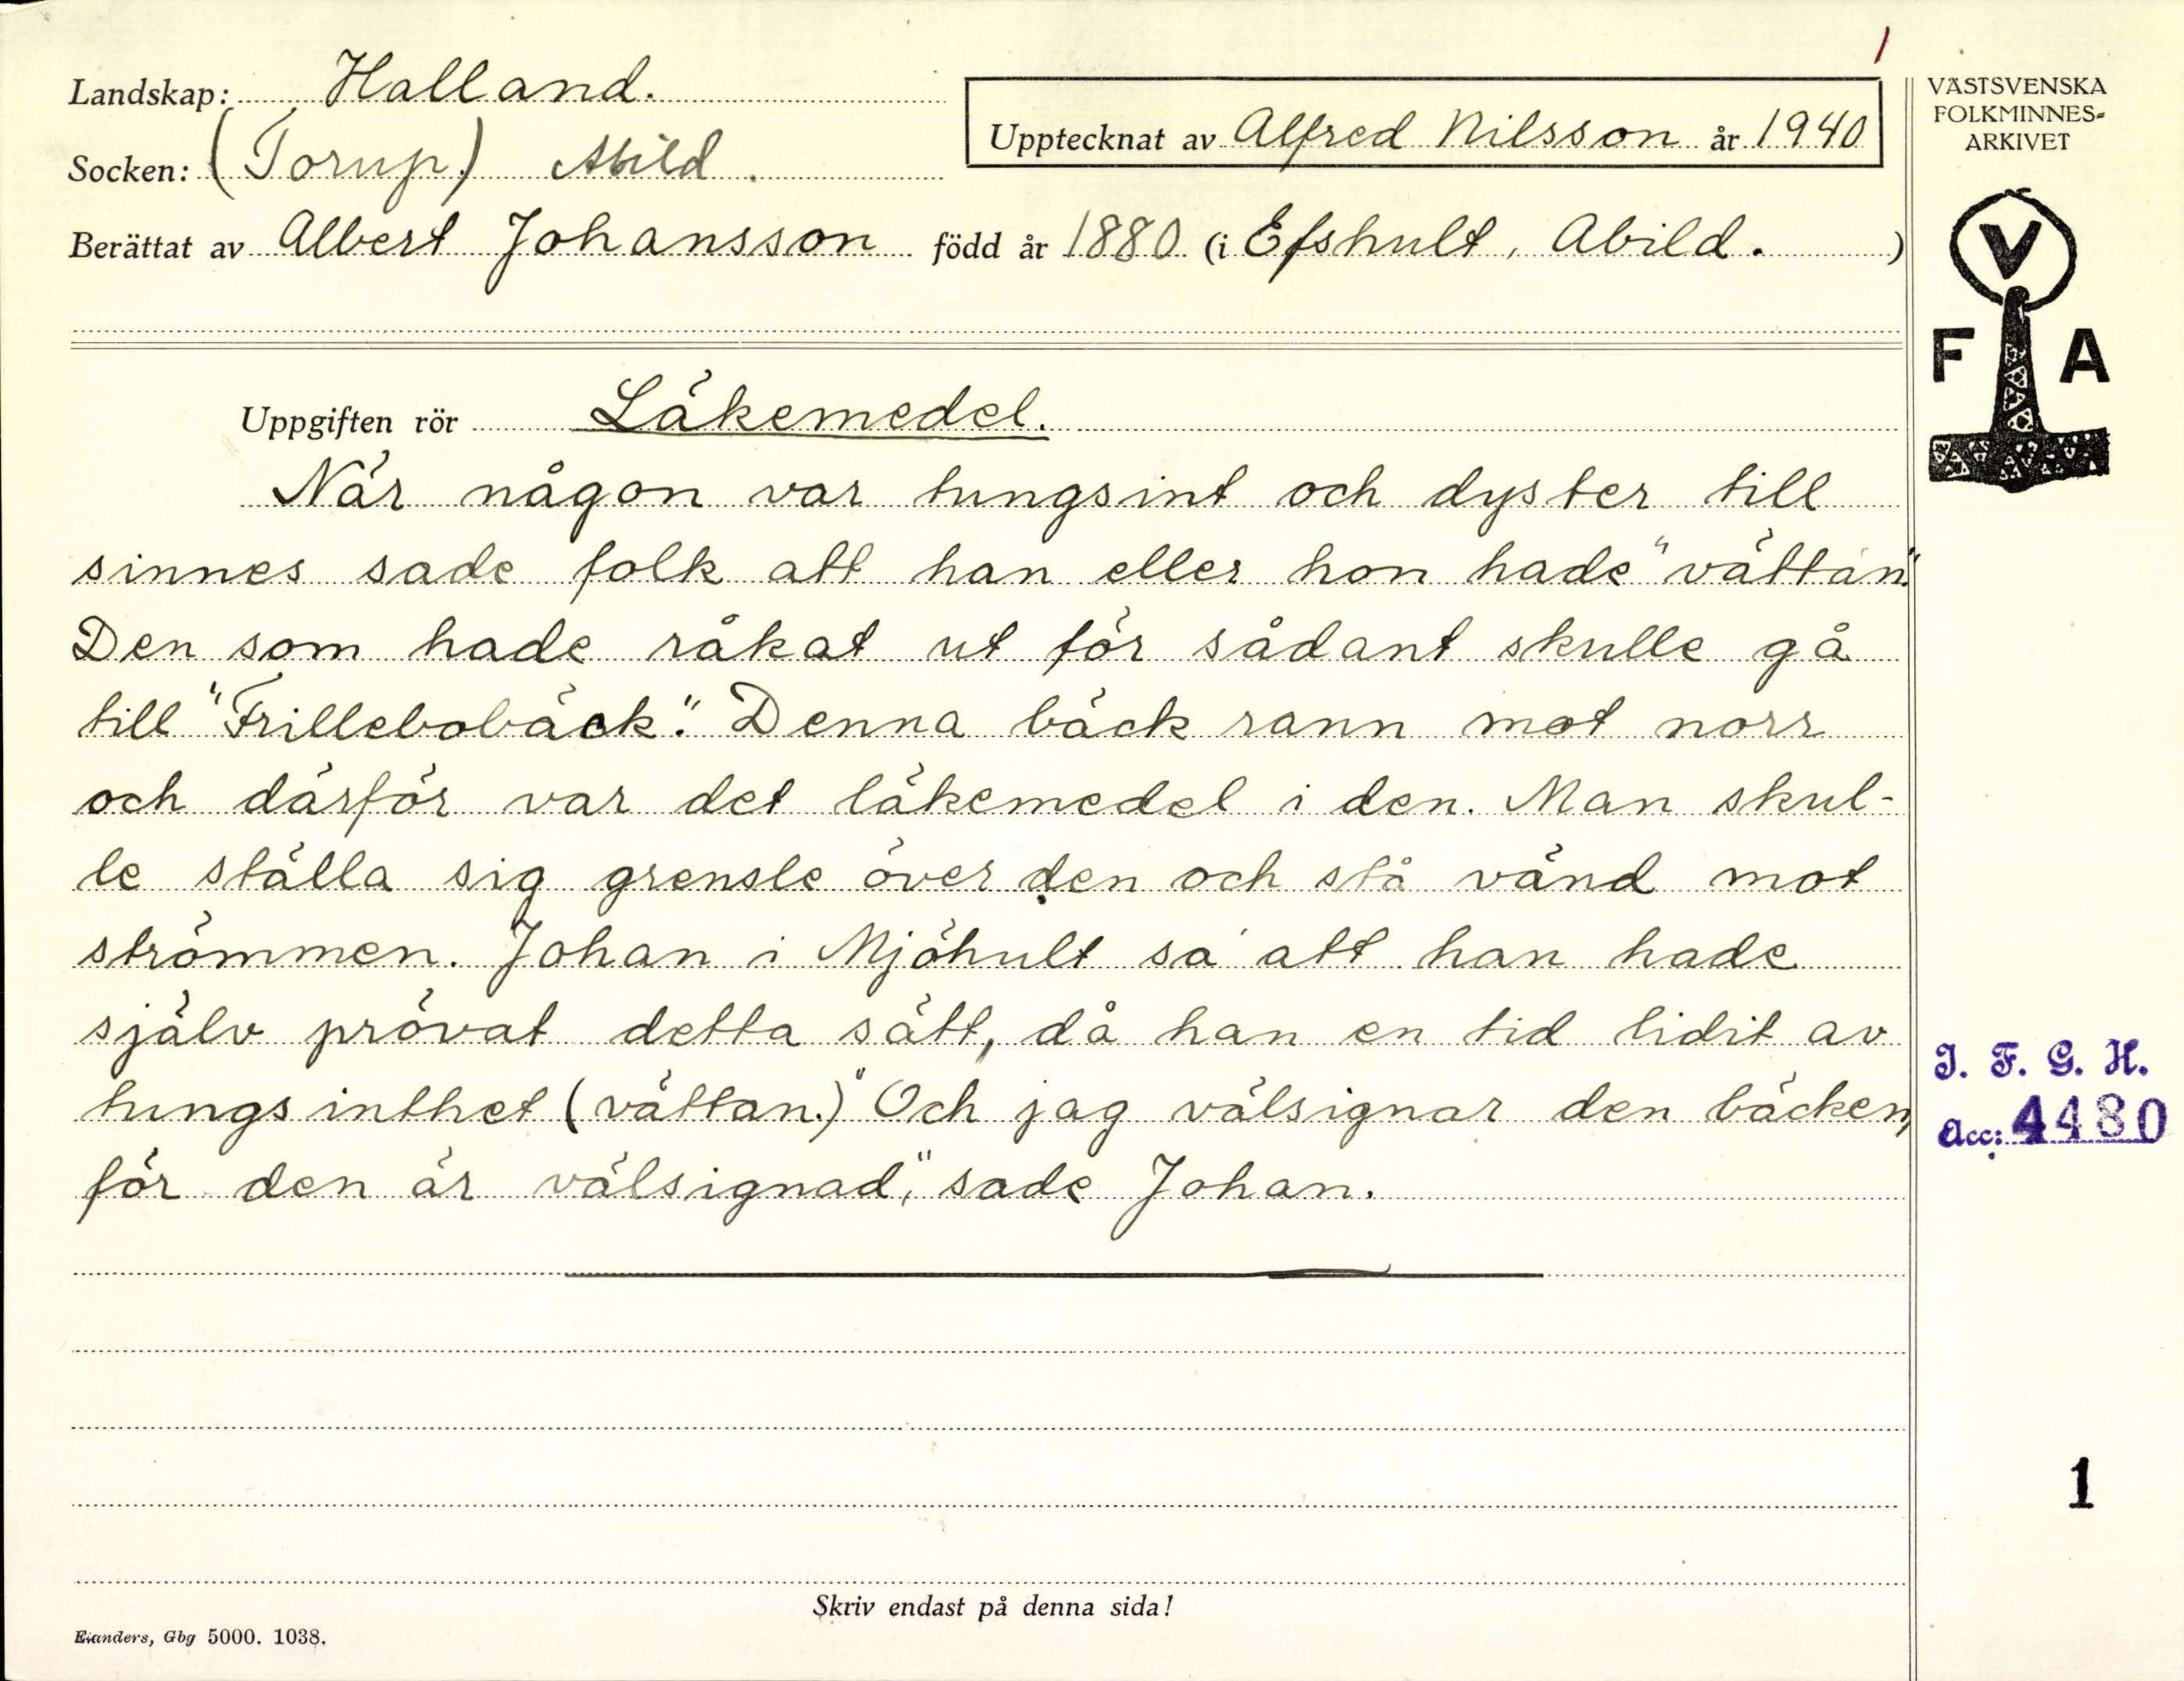 1
Landskap: Halland.
Socken: (Torup) Abild.
Upptecknat av Alfred Nilsson år 1940
Berättat av Albert Johansson född år 1880 (i Efshult, Abild. )
VÄSTSVENSKA
FOLKMINNES-
ARKIVET
V
F A
Uppgiften rör Läkemedel.
När någon var tungsint och dyster till
sinnes sade folk att han eller hon hade "vättan."
Den som hade råkat ut för sådant skulle gå
till "Frillebobäck." Denna bäck rann mot norr
och därför var det läkemedel i den. Man skul-
le ställa sig grensle över den och stå vänd mot
strömmen. Johan i Mjöhult sa' att han hade
själv prövat detta sätt, då han en tid lidit av
tungsinthet (vättan.) "Och jag välsignar den bäcken,
för den är välsignad," sade Johan.
I. F. G. H.
Acc: 4480
1
Skriv endast på denna sida!
Elanders, Gbg 5000. 1038.